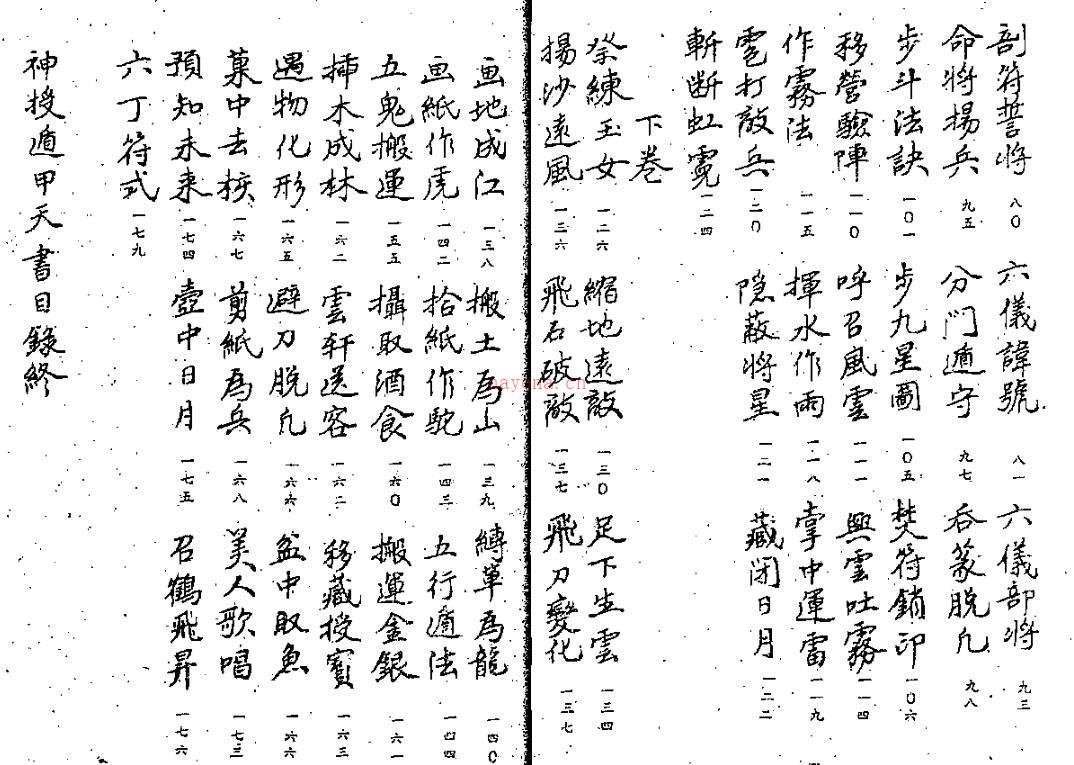 剖符誓将 八〇 六儀諱號 八一 六儀部将 九三
命将揚兵 九五 分门遁守 九七 吞篆脱凢 九八
步斗法訣 一〇一 步九星圖 一〇五 焚符銷印 一〇六
移營驗陣 一一〇 呼召風雲 一一一 興雲吐霧 一一四
作霧法 一一五 揮水作雨 一一八 掌中運雷 一一九
雹打敵兵 一二〇 隐蔽将星 一二一 藏闭日月 一二二
斬断虹霓 一二四
下卷
祭練玉女 一二六 縮地遠敵 一三〇 足下生雲 一三四
揚沙遠風 一三六 飛石破敵 一三七 飛刀變化 一三七
画地成江 一三八 搬土為山 一三九 縛草為龍 一四〇
画紙作虎 一四二 拾紙作駝 一四三 五行遁法 一四四
五鬼搬運 一五五 攝取酒食 一六〇 搬運金銀 一六一
插木成林 一六二 雲轩送客 一六二 移藏授寳 一六三
遇物化形 一六五 避刀脱凢 一六六 盆中取魚 一六六
菓中去核 一六七 剪紙為兵 一六八 美人歌唱 一七三
預知未来 一七四 壺中日月 一七五 召鶴飛昇 一七六
六丁符式 一七九
神授遁甲天書目錄終
nayona.cn